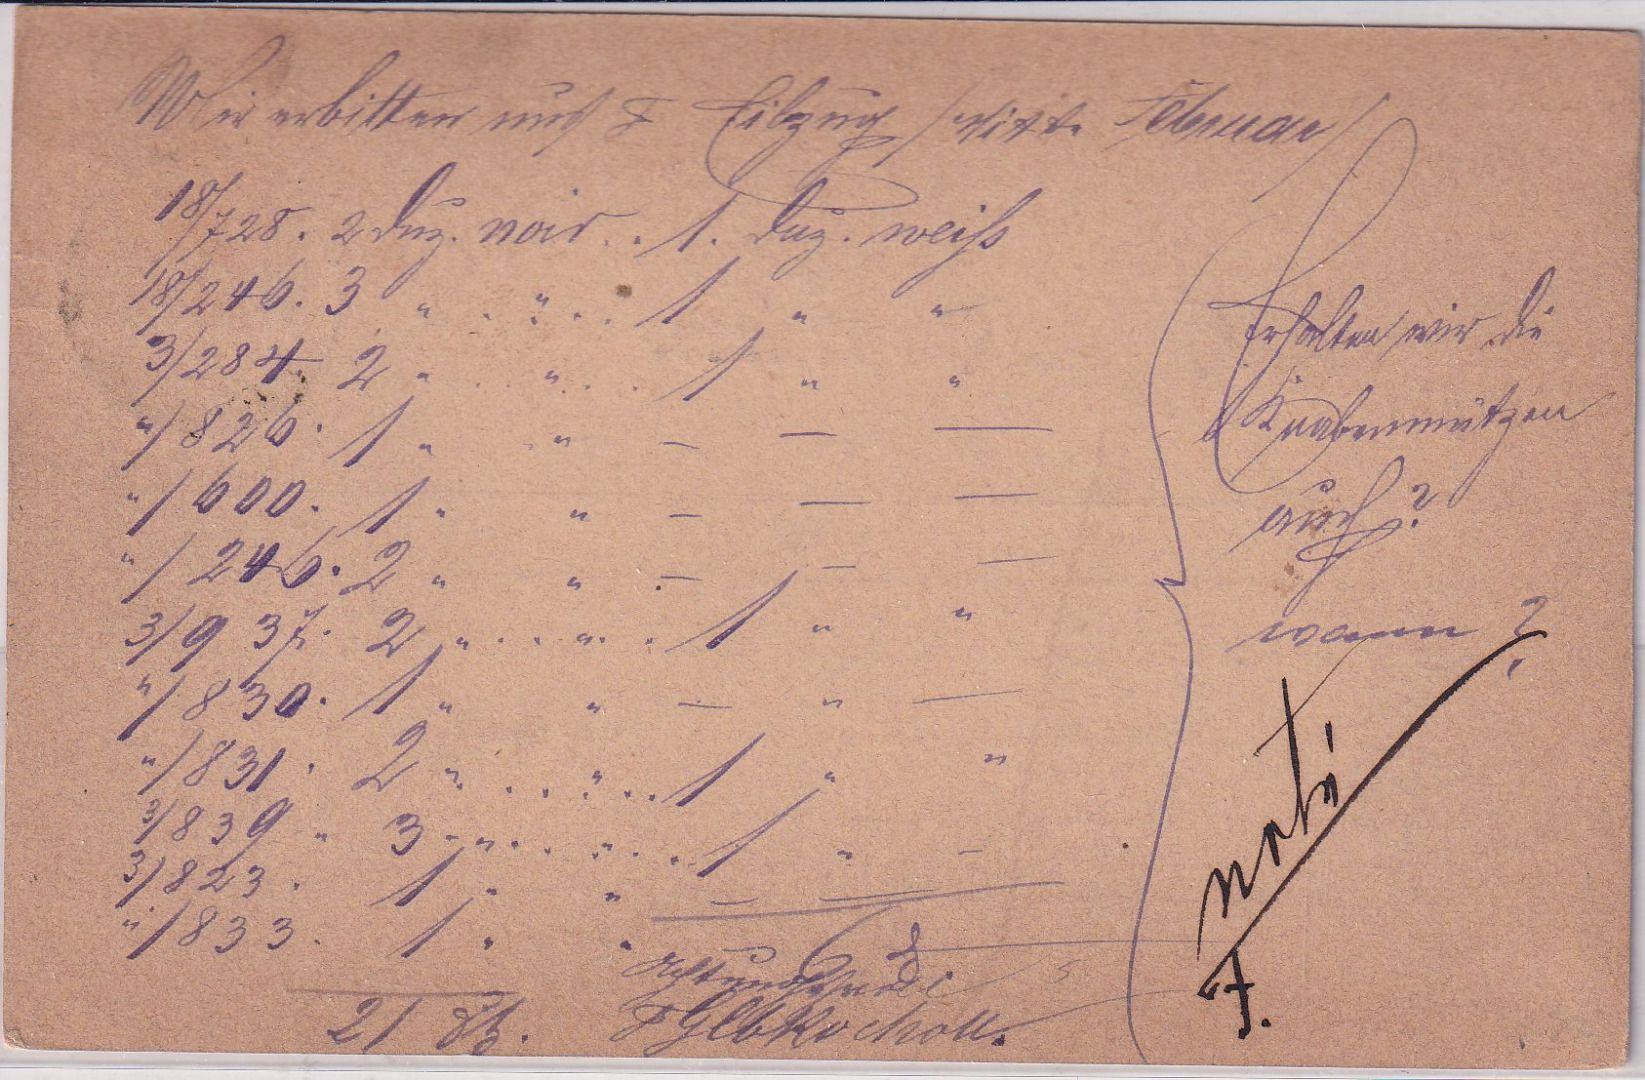 Wir erbitten noch p Eilzug / Mitte Februar /
18/728. 2 Duz. noir .. 1. Duz. weiß
18/246. 3 " . " . . 1 " "
3/284. 2 " . . " . . 1 " "
"/826. 1 " " — — —
"/600. 1 " " — — —
"/246. 2 " " — — —
3/937. 2 " . . " . . 1 " "
"/830. 1 " " — " —
"/831. 2 " . . " . . 1 " "
3/839 " 3 - " . . " . . 1 " —
3/823. 1 " " — —
"/833. 1 " "
21
Achtungsvoll
Erhalten wir die
Knabenmützen
auch?
wann?
noté
F.